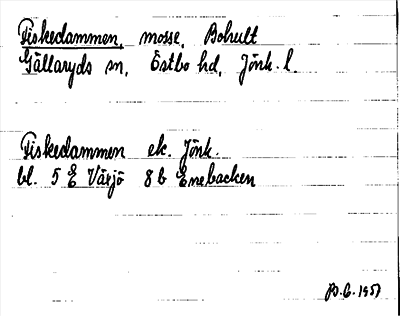 Fiskedammen, mosse, Bohult
Gällaryds sn, Östbo hd, Jönk. l.
Fiskedammen ek. Jönk.
bl. 5 E Växjö 8 b Enebacken
1957